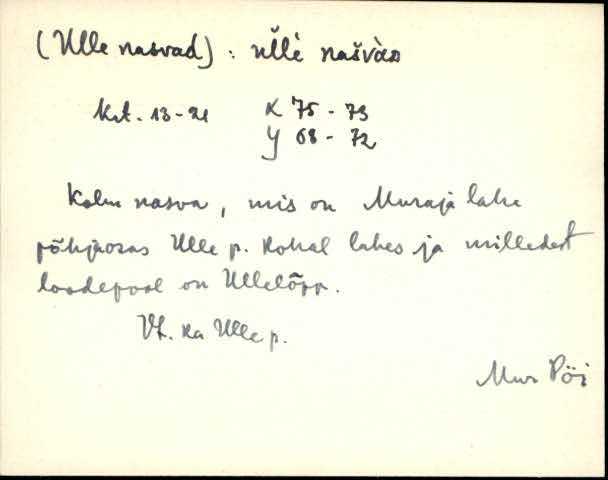 (Ulle nasvad) : ull̀e našvàD
Krt. 13-21 X 75 - 79
Y 68 - 72
Kolm nasva, mis on Muraja lahe
põhjaosas Ulle p. kohal lahes ja milledest
loodepool on Ullelõpp.
Vt. ka Ulle p.
Mur Pöi